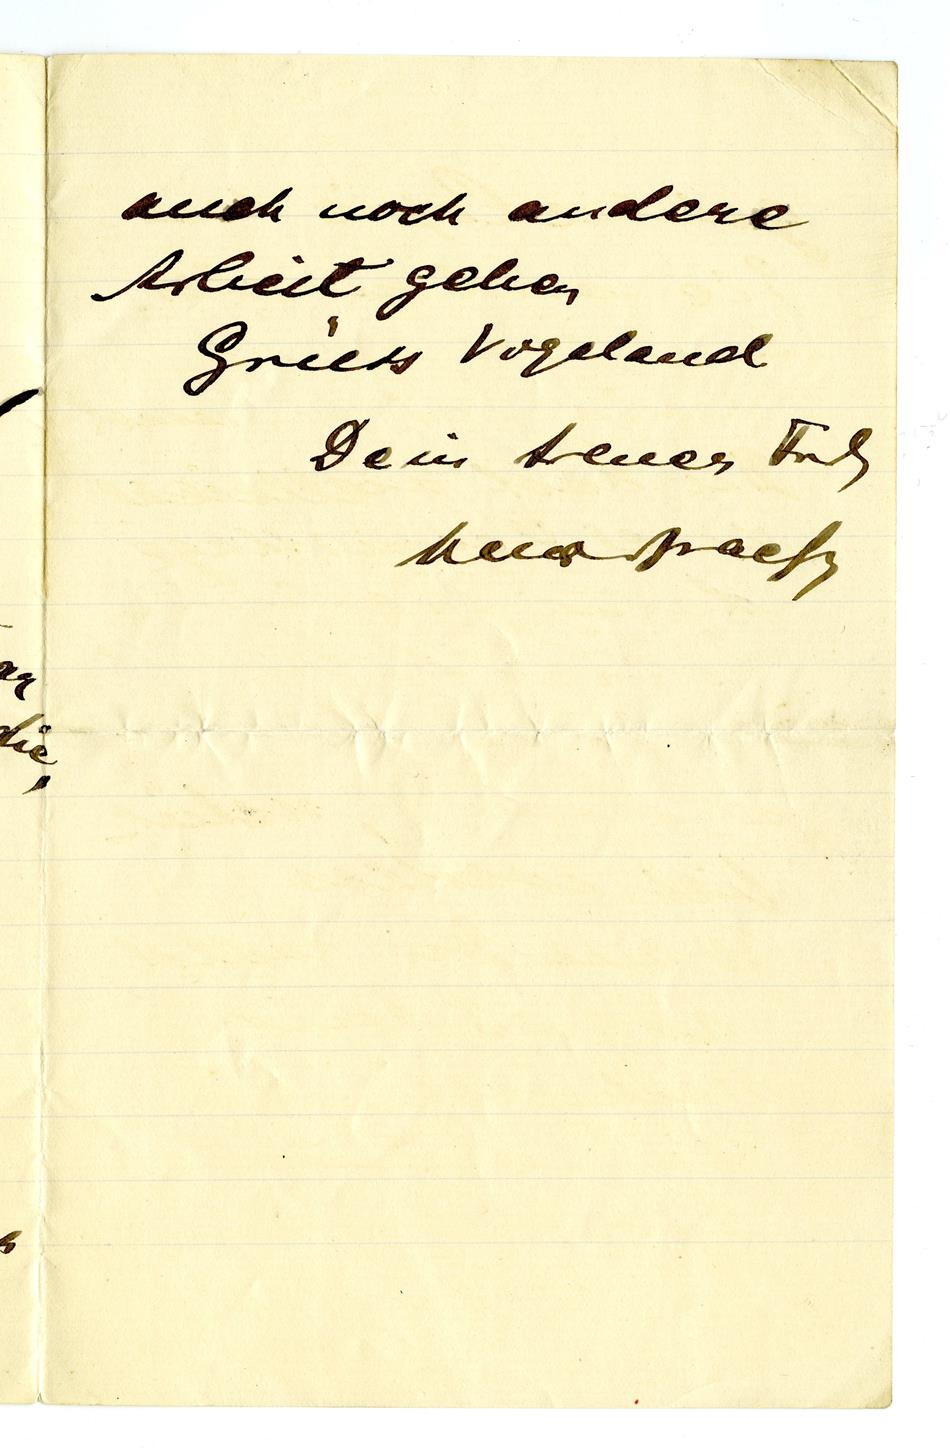 auch noch andere
Arbeit geben
Grüss Vogeland
Dein treuer
Meier Graefe
die,